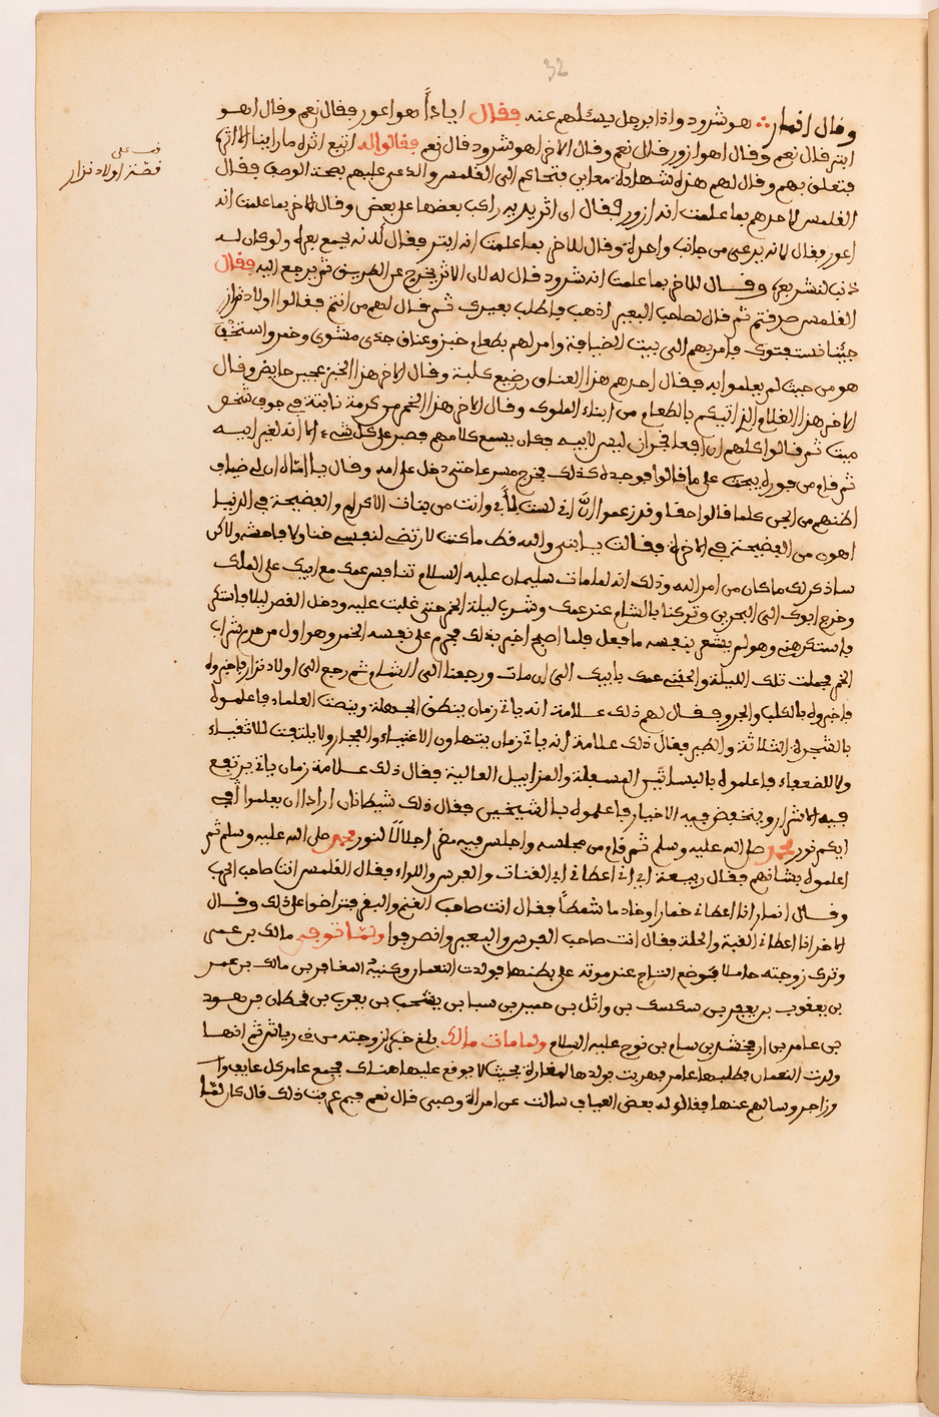 32
قف على
قصّة اولاد نزار
وقال انمار هو شرود واذا برجل يسئلهم عنه فقال اياداً هو اعور فقال نعم وقال اهو
ابتر قال نعم وقال اهو ازور قال نعم وقال الاخر اهو شرود قال نعم فقالوا له اتبع اثره ما راينا الا اثره
فتعلق بهم وقال لهم هذه شهادة معاين فتحاكم الى الغلمس وادعى عليهم بصحة الوصف فقال
الغلمس لاحدهم بما علمت انه ازور فقال ان اثر يديه راكب بعضها على بعض وقال للاخر بما علمت انه
اعور فقال لانه يرعى من جانب واحد وقال للاخر بما علمت انه ابتر فقال لانه يجمع بعره ولو كان له
ذنب لنشر بعره وقال للاخر بما علمت انه شرود قال له لان الاثر يخرج عن الطريق ثم يرجع اليه فقال
الغلمس صدقتم ثم قال لصاحب البعير اذهب فاطلب بعيرك ثم قال لهم من انتم فقالوا اولاد نزار
جئنا نستفتوك فامر بهم الى بيت الضيافة وامر لهم بطعام خبز وعناق جدى مشوى وخمر واستخفى
هو من حيث لم يعلموا به فقال احدهم هذا العناق رضيع كلبة وقال الاخر هذا الخبز عجين حايض وقال
الاخر هذا الغلام الذى اتيكم بالطعام من ابناء الملوك وقال الاخر هذا الخمر من كرمة نابتة في جوف شخص
ميت ثم قالوا كلهم ان افعا نجران ليس لابيه فكان يسمع كلامهم فصبر على كل شىء الا انه لغير ابيه
ثم قام من فوره يبحث على ما قالوا فوجده كذلك فخرج مسرعا حتى دخل على امه وقال يا امّاه ان لى ضياف
اظنهم من الجن كلما قالوا حقا وقد زعموا اني لست لأبي وانت من بنات الاكرام والفضيحة في الدنيا
اهون من الفضيحة في الاخرة فقالت يا ابنى والله قط ما كنت لارتضى لنفسى خنا ولا فاحشة ولاكن
ساذكر لك ما كان من امر الله وذلك انه لما مات سليمان عليه السلام تنافس عمك مع ابيك على الملك
وخرج ابوك الى البحرين وتركنا بالشام عند عمك وشرب ليلة الخمر حتى غلبت عليه ودخل القصر ليلا فاستكر
فاستكرهنى وهو لم يشعر بنفسه ما فعل فلما اصبح اخبر بذلك فحرم على نفسه الخمر وهو اول من حرم شراب
الخمر فحملت تلك الليلة والحقنى عمك بابيك الى ان مات ورجعنا الى الشام ثم رجع الى اولاد نزار فاخبروه
فاخبروه بالكلب والجرو فقال لهم ذلك علامة انه ياتي زمان ينطق الجهلة وينصت العلماء فاعلموه
بالشجرة الثلاثة والطير فقال ذلك علامة انه ياتي زمان يتهاون الاغنياء والفجار ولا يلتفت للاتقياء
ولا للضعفاء فاعلموه بالبساتين المسبلة والمزابيل العالية فقال ذلك علامة زمان ياتي يرتفع
فيه الاشرار وينخفض فيه الاخيار فاعلموه بالشيخين فقال ذلك شيطانان ارادا ان يعلموا في
ايكم نور محمد صلى الله عليه وسلم ثم قام من مجلسه واجلس فيه مضر اجلالًا لنور محمد صلى الله عليه وسلم ثم
اعلموه بشانهم فقال ربيعة ابي اعطاني القنات والفرس واللواء فقال الغلمس انت صاحب الحرب
وقال انمار انا اعطاني حمارا وخادما شمطاً فقال انت صاحب الغنم والبقر فتراضوا على ذلك وقال
الاخر انا اعطاني القبة والحلة فقال انت صاحب الفرس والبعير وانصرفوا ولمّا توفى مالك بن عمى
وترك زوجته حاملا فوضع التاج عند موته على بطنها فولدت النعمان وكنية المعافر بن مالك بن عمر
بن يعقوب بن يعفر بن سكسك بن واثل بن حمير بن سبا بن يشجب بن يعرب بن قحطان بن هود
بن عامر بن ارفخشد بن سام بن نوح عليه السلام ولما مات مالك بلغ خبر زوجته من في رياش ثم انها
ولدت النعمان فطلبها عامر فهربت بولدها لمغارة بحيث لا يوقع عليها هناك فجمع عامر كل عايف و
وزاجر وسالهم عنها فقالو له بعض العياف سالت عن امراة وصبى قال نعم فبم عرفت ذلك قال كان لمّا